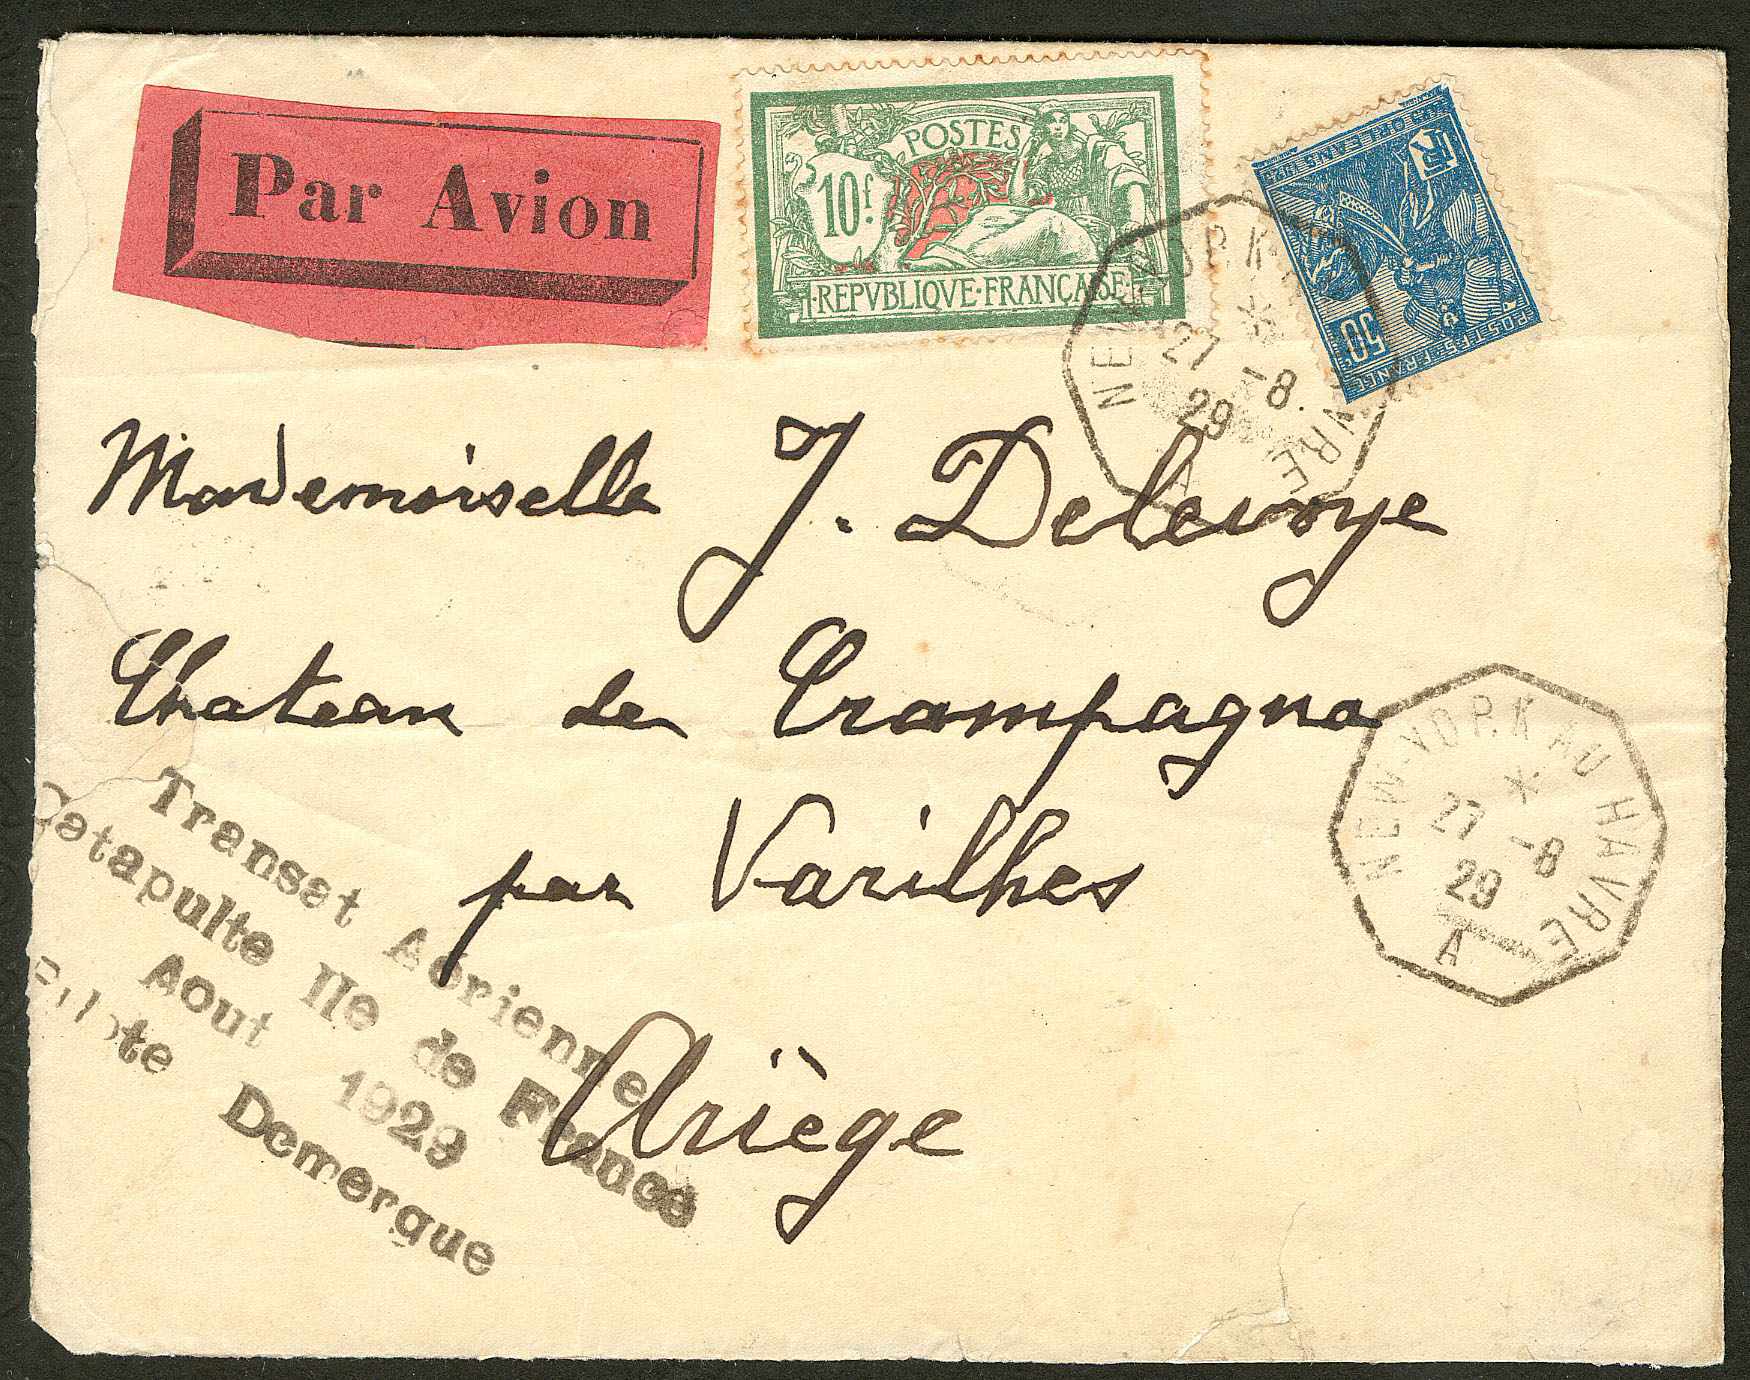 Par Avion
POSTES
10f
REPVBLIQVE·FRANÇAISE
RF
50c
POSTES·FRANCE
NEW-YORK AU HAVRE
*
27 -8
29
A
Mademoiselle J. Delevoye
Chateau de Crampagna
par Varilhes
Ariège
NEW-YORK AU HAVRE
*
27 -8
29
A
Transat Aérienne
Catapulte Ile de France
Aout 1929
Pilote Demerque